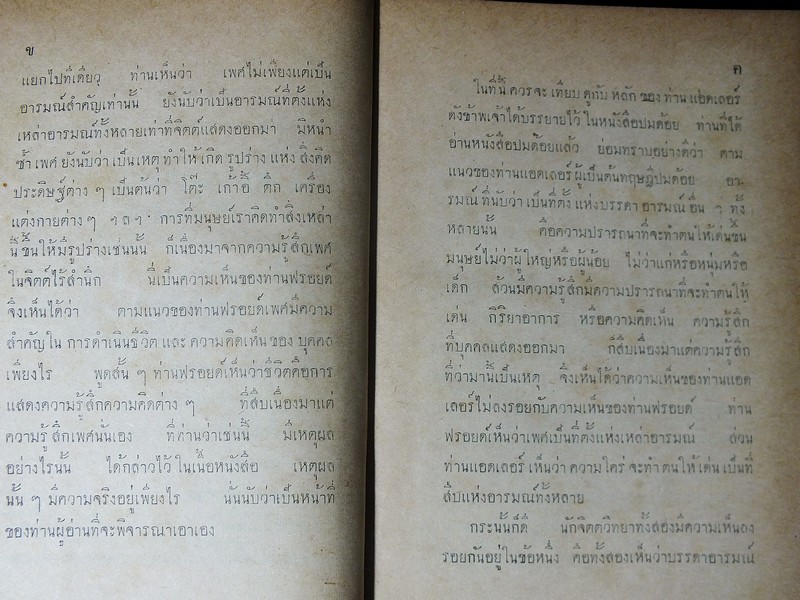 ข
แยกไปทีเดียว ท่านเห็นว่า เพศไม่เพียงแต่เป็น
อารมณ์สำคัญเท่านั้น ยังนับว่าเป็นอารมณ์ที่ตั้งแห่ง
เหล่าอารมณ์ทั้งหลายเท่าที่จิตต์แสดงออกมา มิหนำ
ซ้ำ เพศ ยังนับว่า เป็นเหตุ ทำ ให้ เกิด รูปร่าง แห่ง สิ่งคิด
ประดิษฐ์ต่าง ๆ เป็นต้นว่า โต๊ะ เก้าอี้ ตึก เครื่อง
แต่งกายต่างๆ ฯลฯ การที่มนุษย์เราคิดทำสิ่งเหล่า
นี้ขึ้นให้มีรูปร่างเช่นนั้น ก็เนื่องมาจากความรู้สึกเพศ
ในจิตต์ไร้สำนึก นี่เป็นความเห็นของท่านฟรอยด์
จึงเห็นได้ว่า ตามแนวของท่านฟรอยด์เพศมีความ
สำคัญใน การดำเนินชีวิต และ ความคิดเห็นของ บุคคล
เพียงไร พูดสั้น ๆ ท่านฟรอยด์เห็นว่าชีวิตคือการ
แสดงความรู้สึกความคิดต่าง ๆ ที่สืบเนื่องมาแต่
ความรู้สึกเพศนั่นเอง ที่ท่านว่าเช่นนี้ มีเหตุผล
อย่างไรนั้น ได้กล่าวไว้ ในเนื้อหนังสือ เหตุผล
นั้น ๆ มีความจริงอยู่เพียงไร นั่นนับว่าเป็นหน้าที่
ของท่านผู้อ่านที่จะพิจารณาเอาเอง
ค
ในที่นี้ ควรจะ เทียบ ดูกับ หลัก ของ ท่าน แอดเลอร์
ดังข้าพเจ้าได้บรรยายไว้ ในหนังสือปมด้อย ท่านที่ได้
อ่านหนังสือปมด้อยแล้ว ย่อมทราบอย่างดีว่า ตาม
แนวของท่านแอดเลอร์ผู้เป็นต้นทฤษฎีปมด้อย อา-
รมณ์ ที่นับว่า เป็นที่ตั้ง แห่งบรรดา อารมณ์ อื่น ๆ ทั้ง
หลายนั้น คือความปรารถนาที่จะทำตนให้เด่นขึ้น
มนุษย์ไม่ว่าผู้ใหญ่หรือผู้น้อย ไม่ว่าแก่หรือหนุ่มหรือ
เด็ก ล้วนมีความรู้สึกมีความปรารถนาที่จะทำตนให้
เด่น กิริยาอาการ หรือความคิดเห็น ความรู้สึก
ที่บุคคลแสดงออกมา ก็สืบเนื่องมาแต่ความรู้สึก
ที่ว่ามานี้เป็นเหตุ จึงเห็นได้ว่าความเห็นของท่านแอด
เลอร์ไม่ลงรอยกับความเห็นของท่านฟรอยด์ ท่าน
ฟรอยด์เห็นว่าเพศเป็นที่ตั้งแห่งเหล่าอารมณ์ ส่วน
ท่านแอดเลอร์ เห็นว่า ความใคร่ จะทำ ตนให้ เด่น เป็นที่
สืบแห่งอารมณ์ทั้งหลาย
กระนั้นก็ดี นักจิตตวิทยาทั้งสองมีความเห็นลง
รอยกันอยู่ในข้อหนึ่ง คือทั้งสองเห็นว่าบรรดาอารมณ์